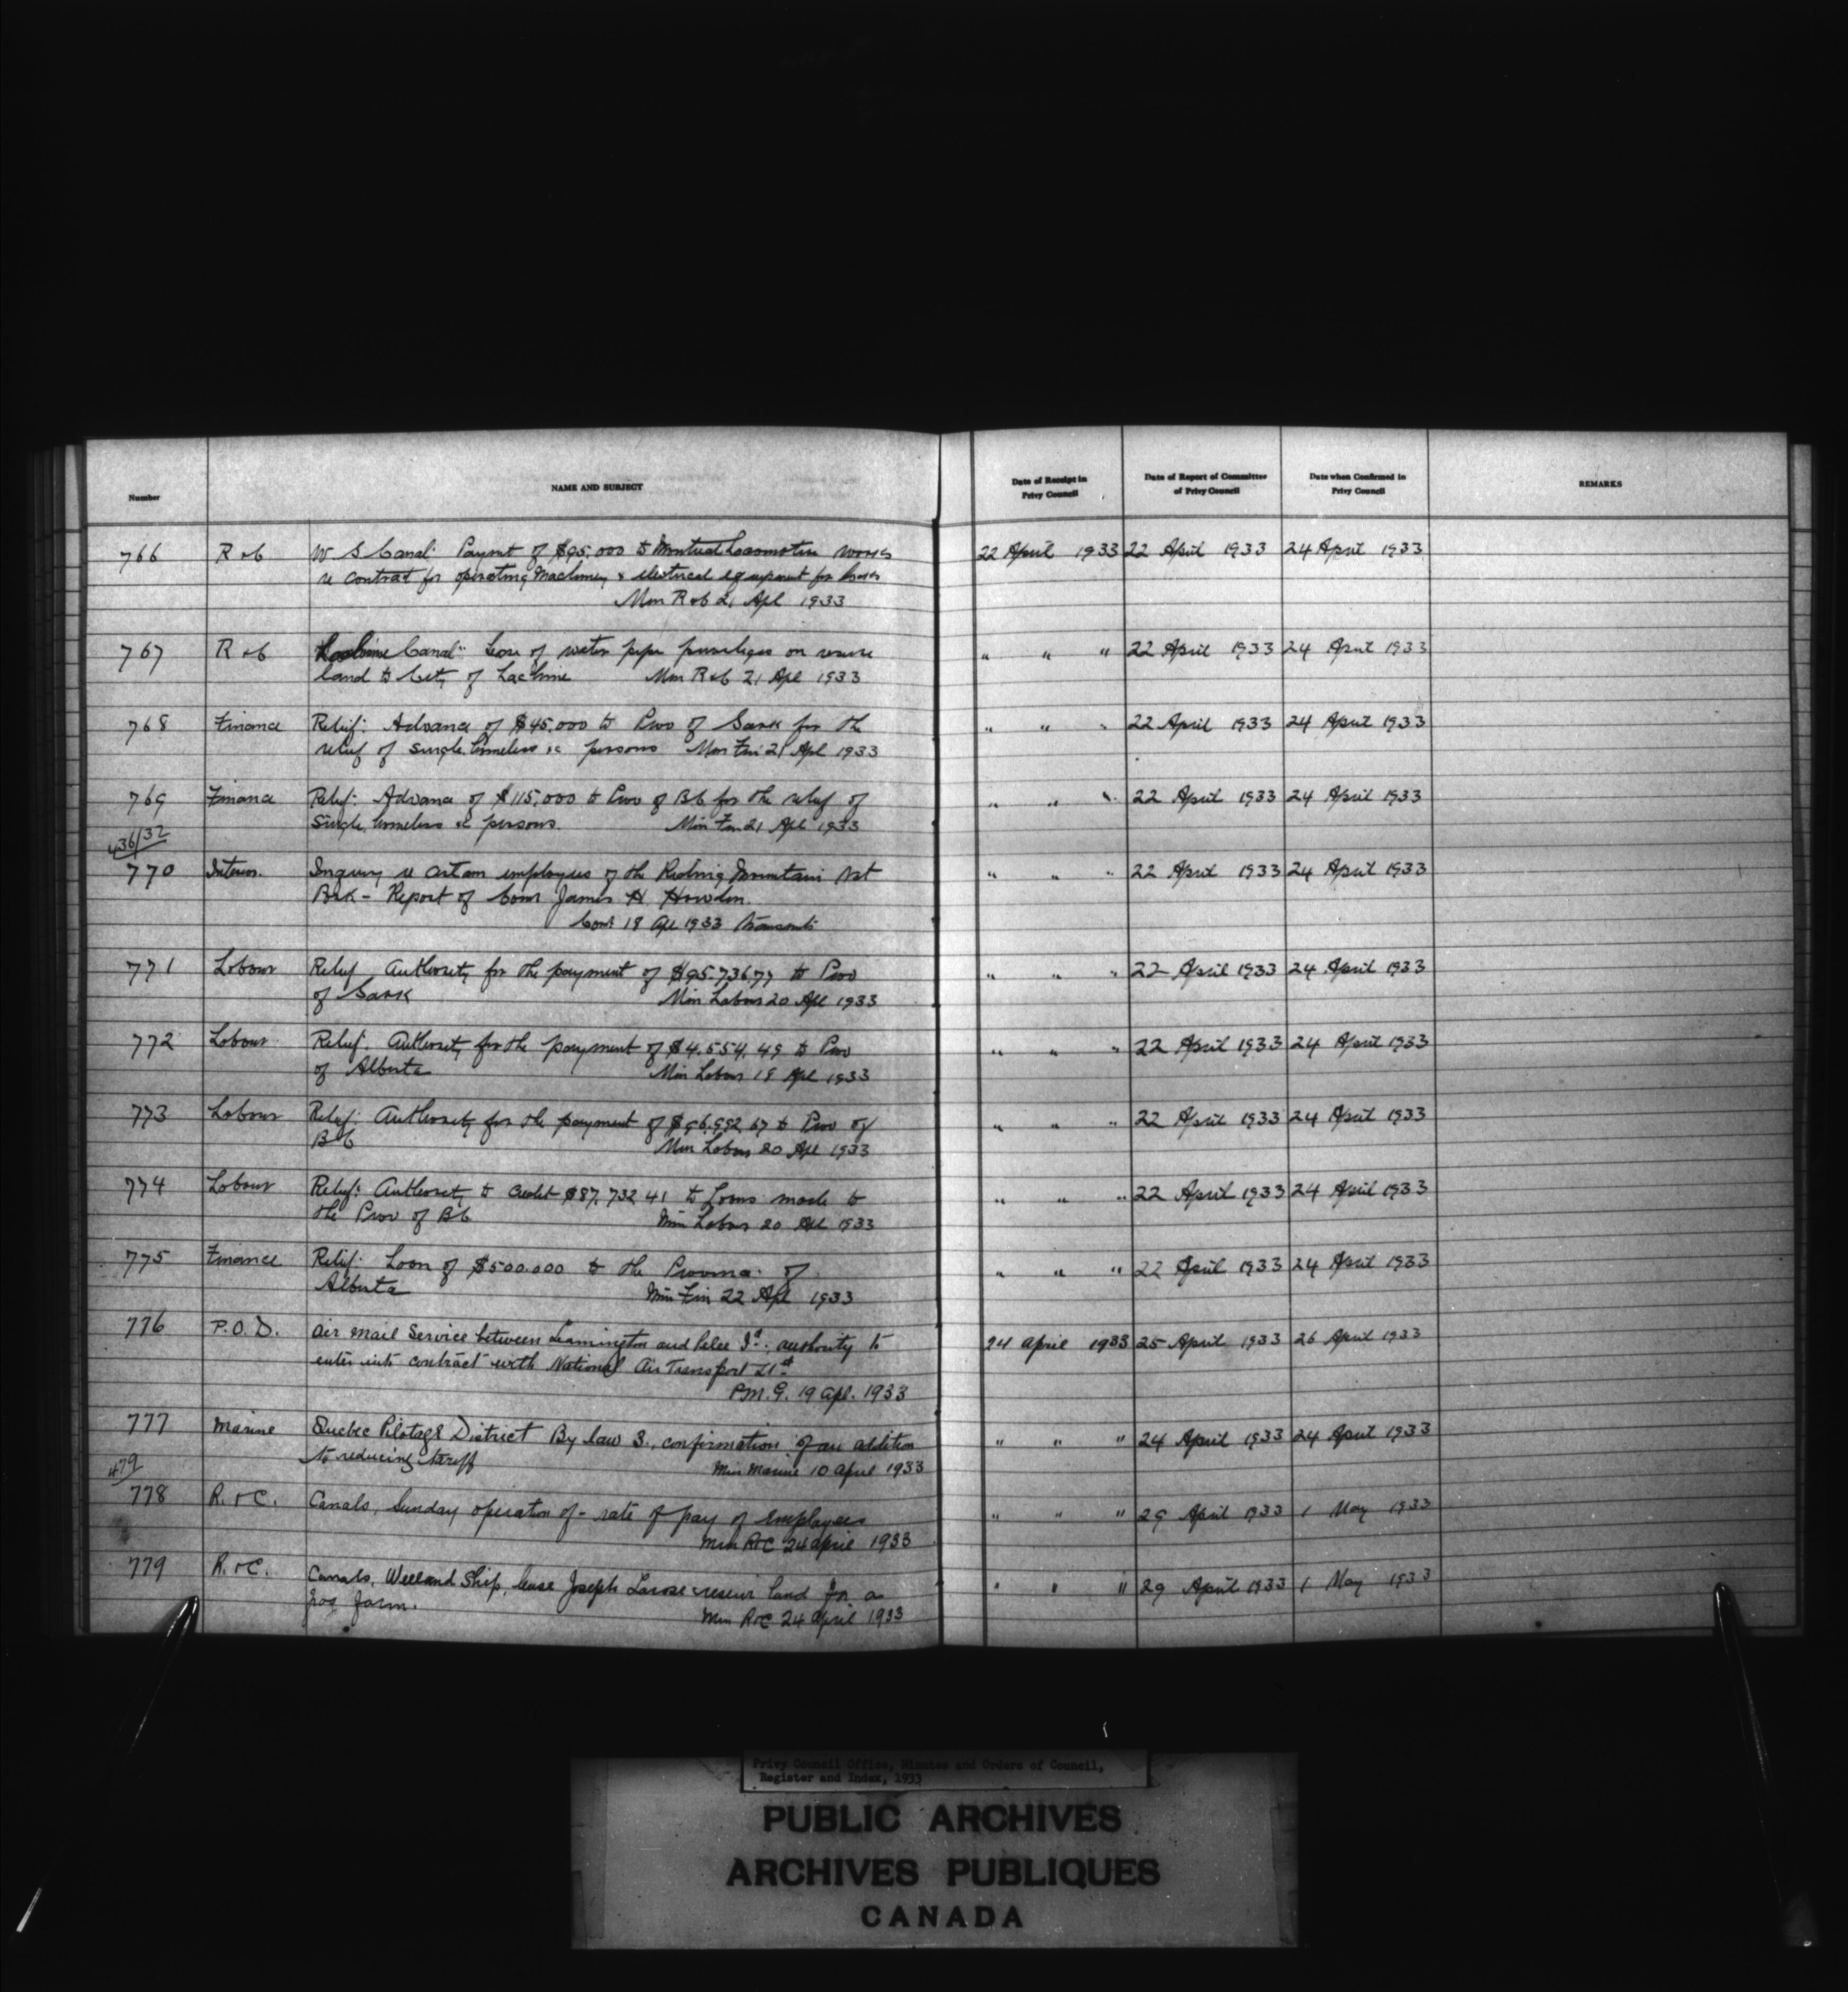 Number
NAME AND SUBJECT
Date of Receipt in Privy Council
Date of Report of Committee of Privy Council
Date when Confirmed in Privy Council
REMARKS
766 R & C W S Canal: Payment of $95,000 to Montreal Locomotive Works 22 April 1933 22 April 1933 24 April 1933
re contract for operating Machinery & electrical equipment for
Min R & C 21 Apl 1933
767 R & C Lachine Canal: Lease of water pipe privileges on reserve " " " 22 April 1933 24 April 1933
land to City of Lachine Min R & C 21 Apl 1933
768 Finance Relief: Advance of $45,000 to Prov of Sask for the " " " 22 April 1933 24 April 1933
relief of single homeless &c persons Min Fin 21 Apl 1933
769 Finance Relief: Advance of $115,000 to Prov of BC for the relief of " " " 22 April 1933 24 April 1933
single, homeless &c persons. Min Fin 21 Apl 1933
436/32
770 Interior. Inquiry re certain employees of the Riding Mountain Nat " " " 22 April 1933 24 April 1933
Park - Report of Comr James H Howden.
Comr 18 Apl 1933 transmits
771 Labour Relief Authority for the payment of $95,736.77 to Prov " " " 22 April 1933 24 April 1933
of Sask Min Labour 20 Apl 1933
772 Labour Relief. Authority for the payment of $4,554.49 to Prov " " " 22 April 1933 24 April 1933
of Alberta Min Labour 19 Apl 1933
773 Labour Relief: Authority for the payment of $96,992.67 to Prov of " " " 22 April 1933 24 April 1933
BC Min Labour 20 Apl 1933
774 Labour Relief: Authority to credit $87,732.41 to loans made to " " " 22 April 1933 24 April 1933
the Prov of BC Min Labour 20 Apl 1933
775 Finance Relief: Loan of $500,000 to the Province of " " " 22 April 1933 24 April 1933
Alberta Min Fin 22 Apl 1933
776 P.O.D. Air Mail Service between Leamington and Pelee Id. authority to 24 April 1933 25 April 1933 26 April 1933
enter into contract with National Air Transport Ltd.
P.M.G. 19 Apl. 1933
777 Marine Quebec Pilotage District By law 3., confirmation of an addition " " " 24 April 1933 24 April 1933
to reducing tariff Min Marine 10 April 1933
479
778 R. & C. Canals, Sunday operation of - rate of pay of employees " " " 29 April 1933 1 May 1933
Min R&C 24 April 1933
779 R. & C. Canals, Welland Ship, lease Joseph Larose reserve land for a " " " 29 April 1933 1 May 1933
frog farm. Min R&C 24 April 1933
Privy Council Office, Minutes and Orders of Council,
Register and Index, 1933
PUBLIC ARCHIVES
ARCHIVES PUBLIQUES
CANADA